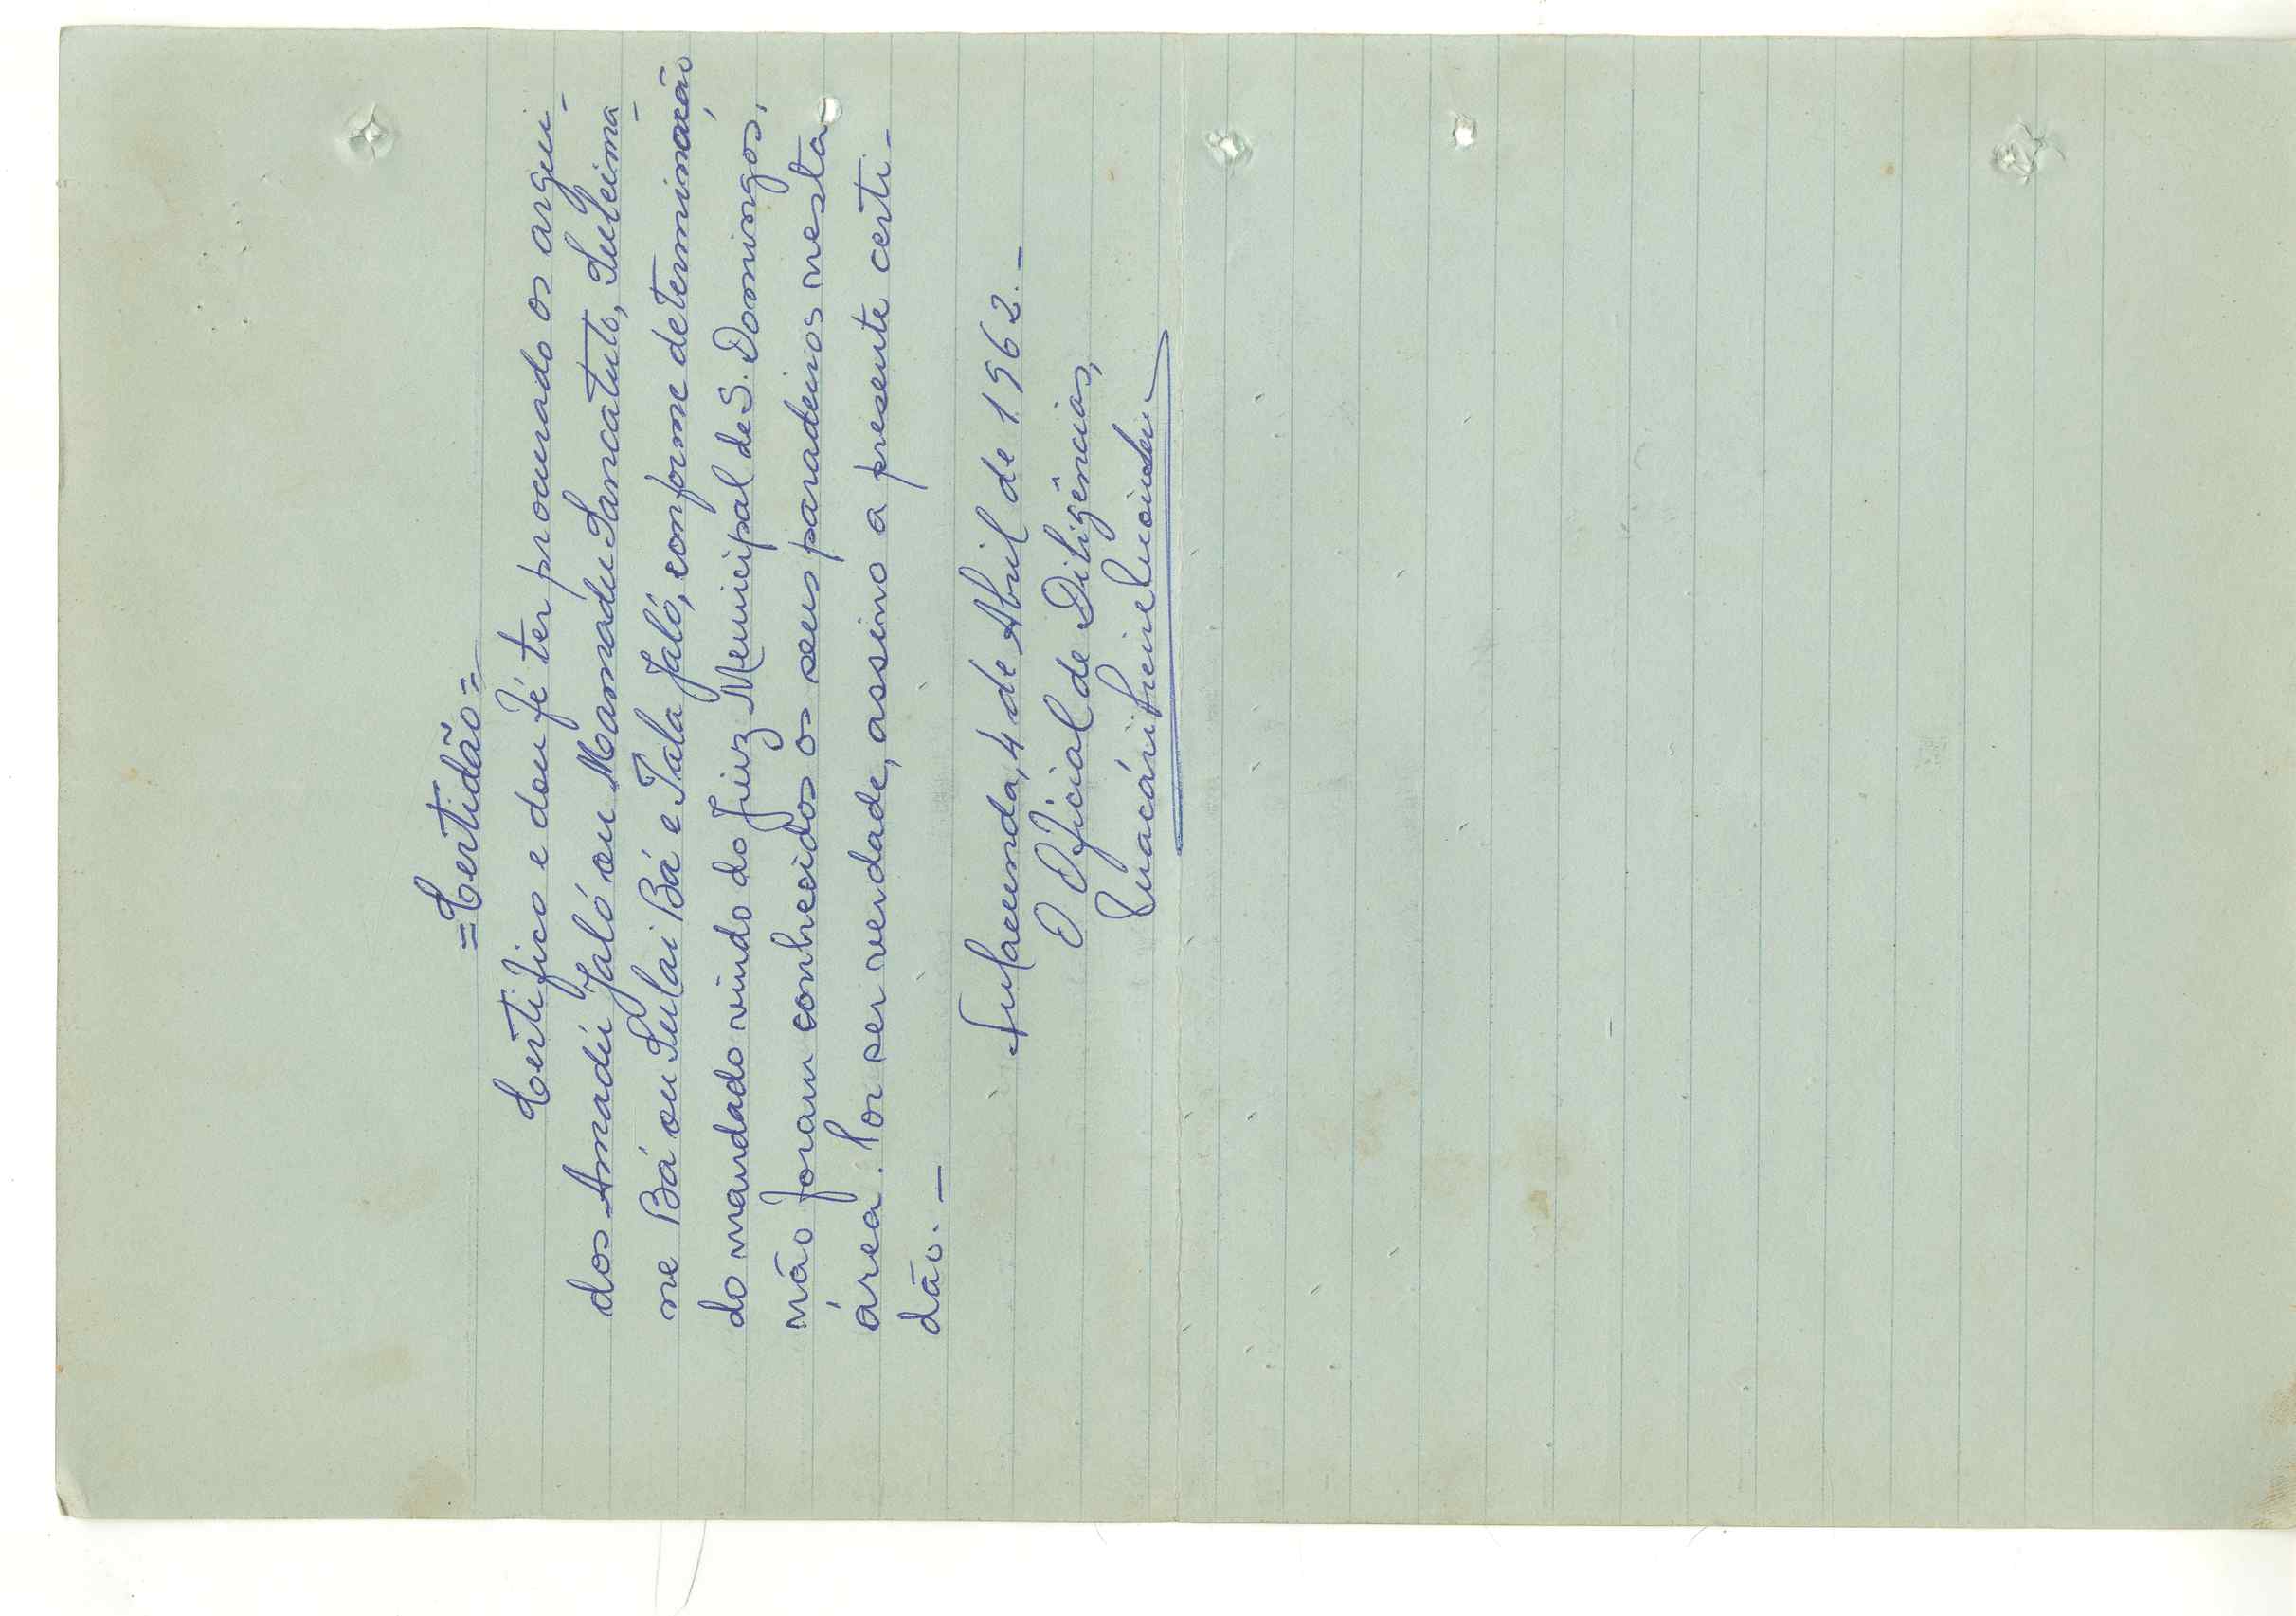 =Certidão=
Certifico e dou fé ter procurado os argui-
dos Amadú Jaló ou Mamadu Sancatuto, Suleima-
ne Bá ou Sulai Bá e Tala Jaló, conforme determinação
do mandado vindo do Juiz Municipal de S. Domingos,
não foram conhecidos os seus paradeiros nesta
área. Por ser verdade, assino a presente certi-
dão. —
Sulacunda, 4 de Abril de 1962. —
O Oficial de Diligências,